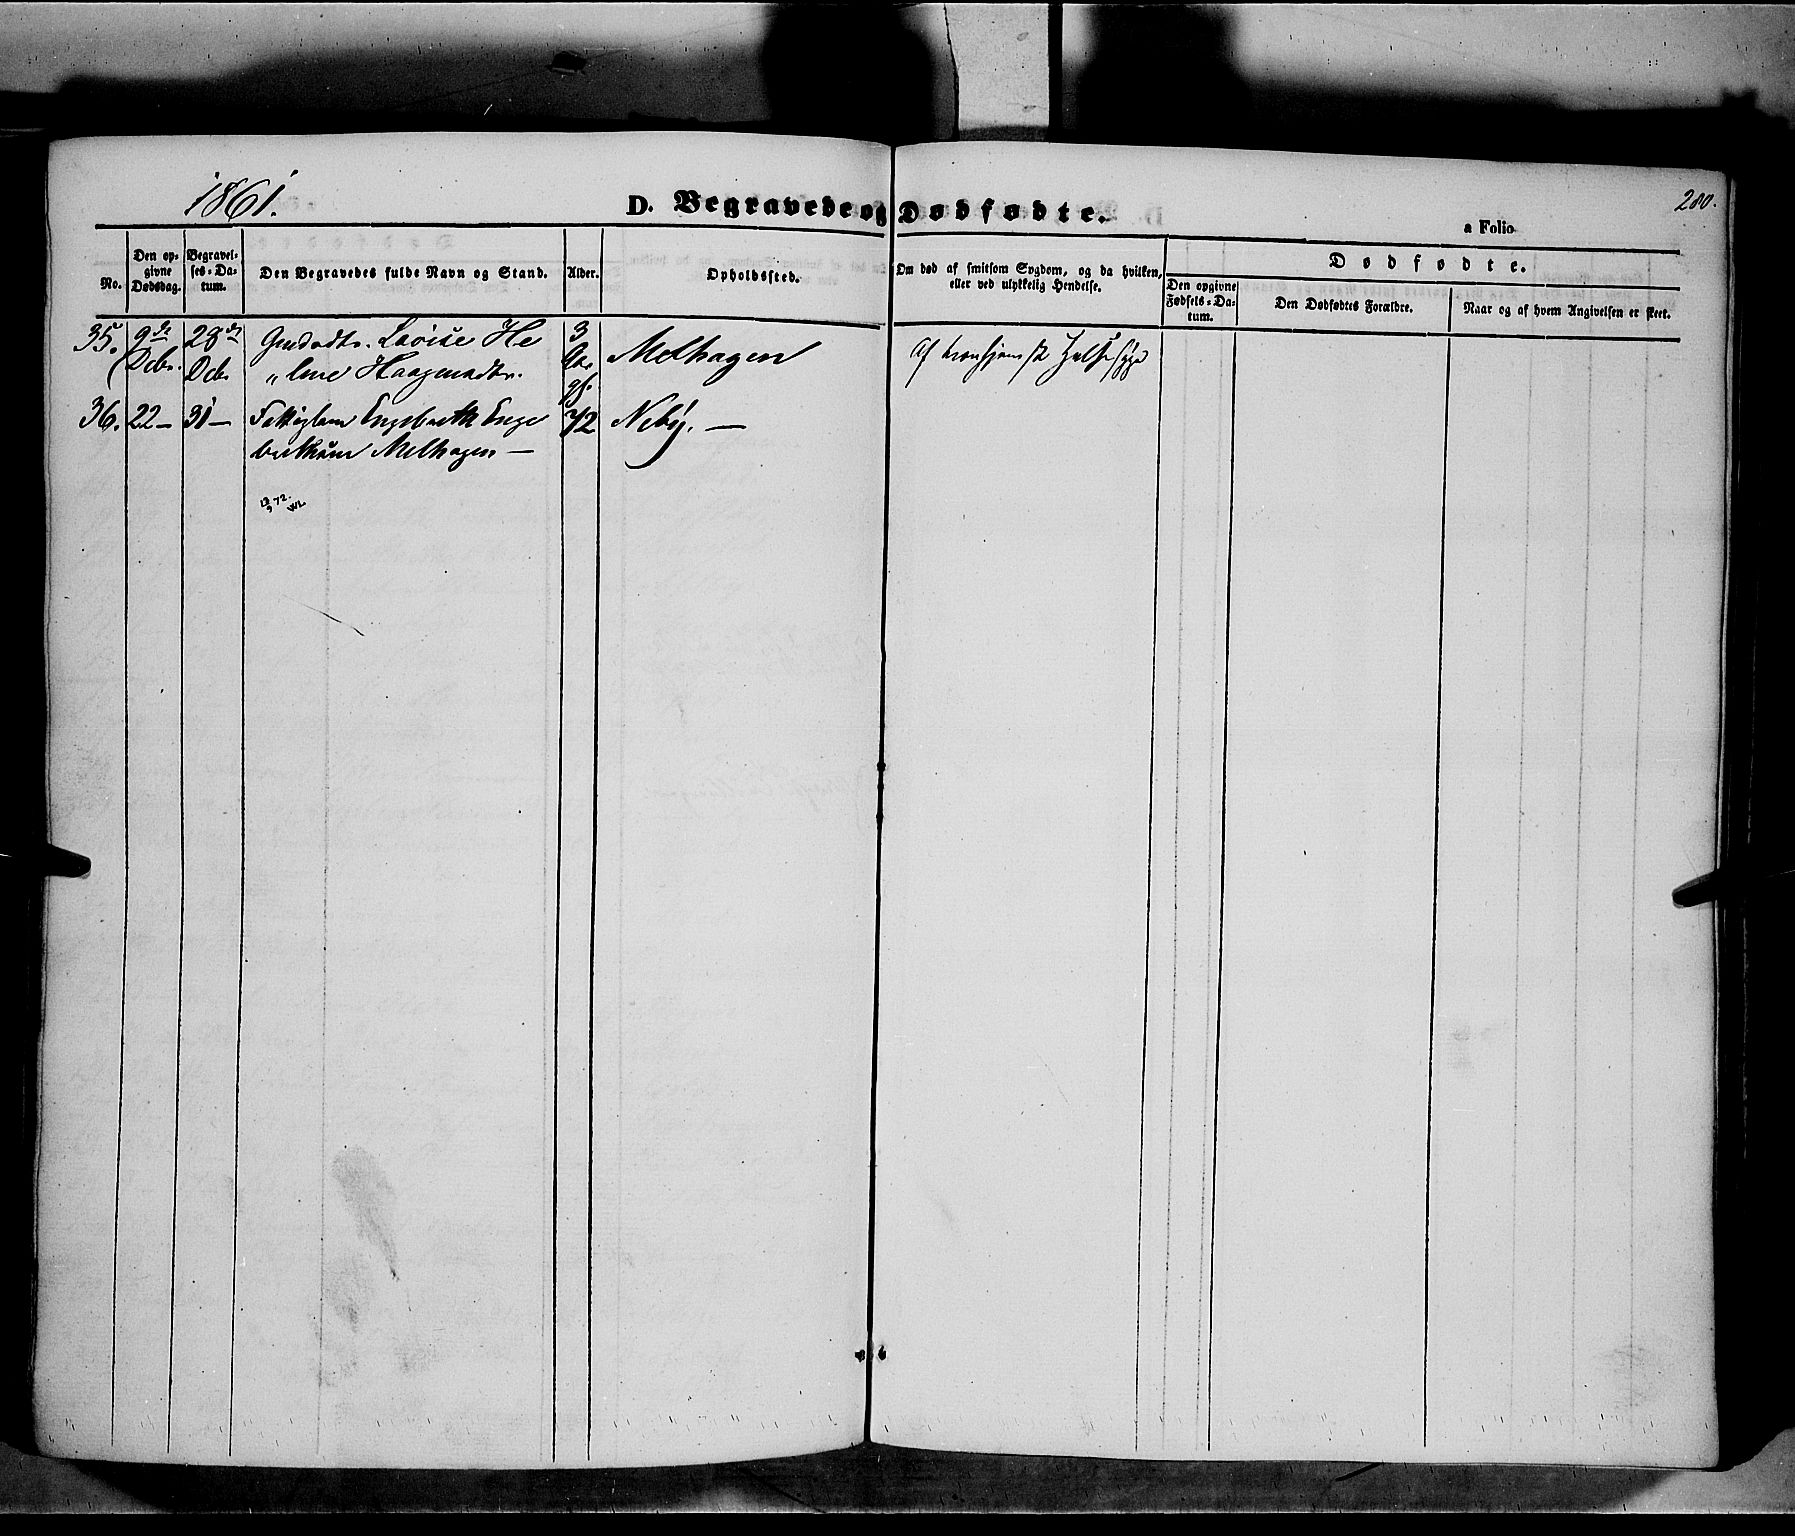 1861.
D. Begravede og Dødfødte.
280.
a Folio
No.
Den op-
givne
Dødsdag.
Begravel-
ses-Da-
tum.
Den Begravedes fulde Navn og Stand.
Alder.
Opholdssted.
Om død af smitsom Sygdom, og da hvilken,
eller ved ulykkelig Hendelse.
Dødfødte.
Den opgivne
Fødsels-Da-
tum.
Den Dødfødtes Forældre.
Naar og af hvem Angivelsen er skeet.
35. 9de 28de Gmdsdtr. Lovise He 3
Dcbr. Dcb. „lene Haagensdtr. Aar
gl.
Melhagen
Af
36. 22 – 31 – Fattiglem Engebreth Enge 72 Nebÿ. —
brethsen Melhagen —
72.